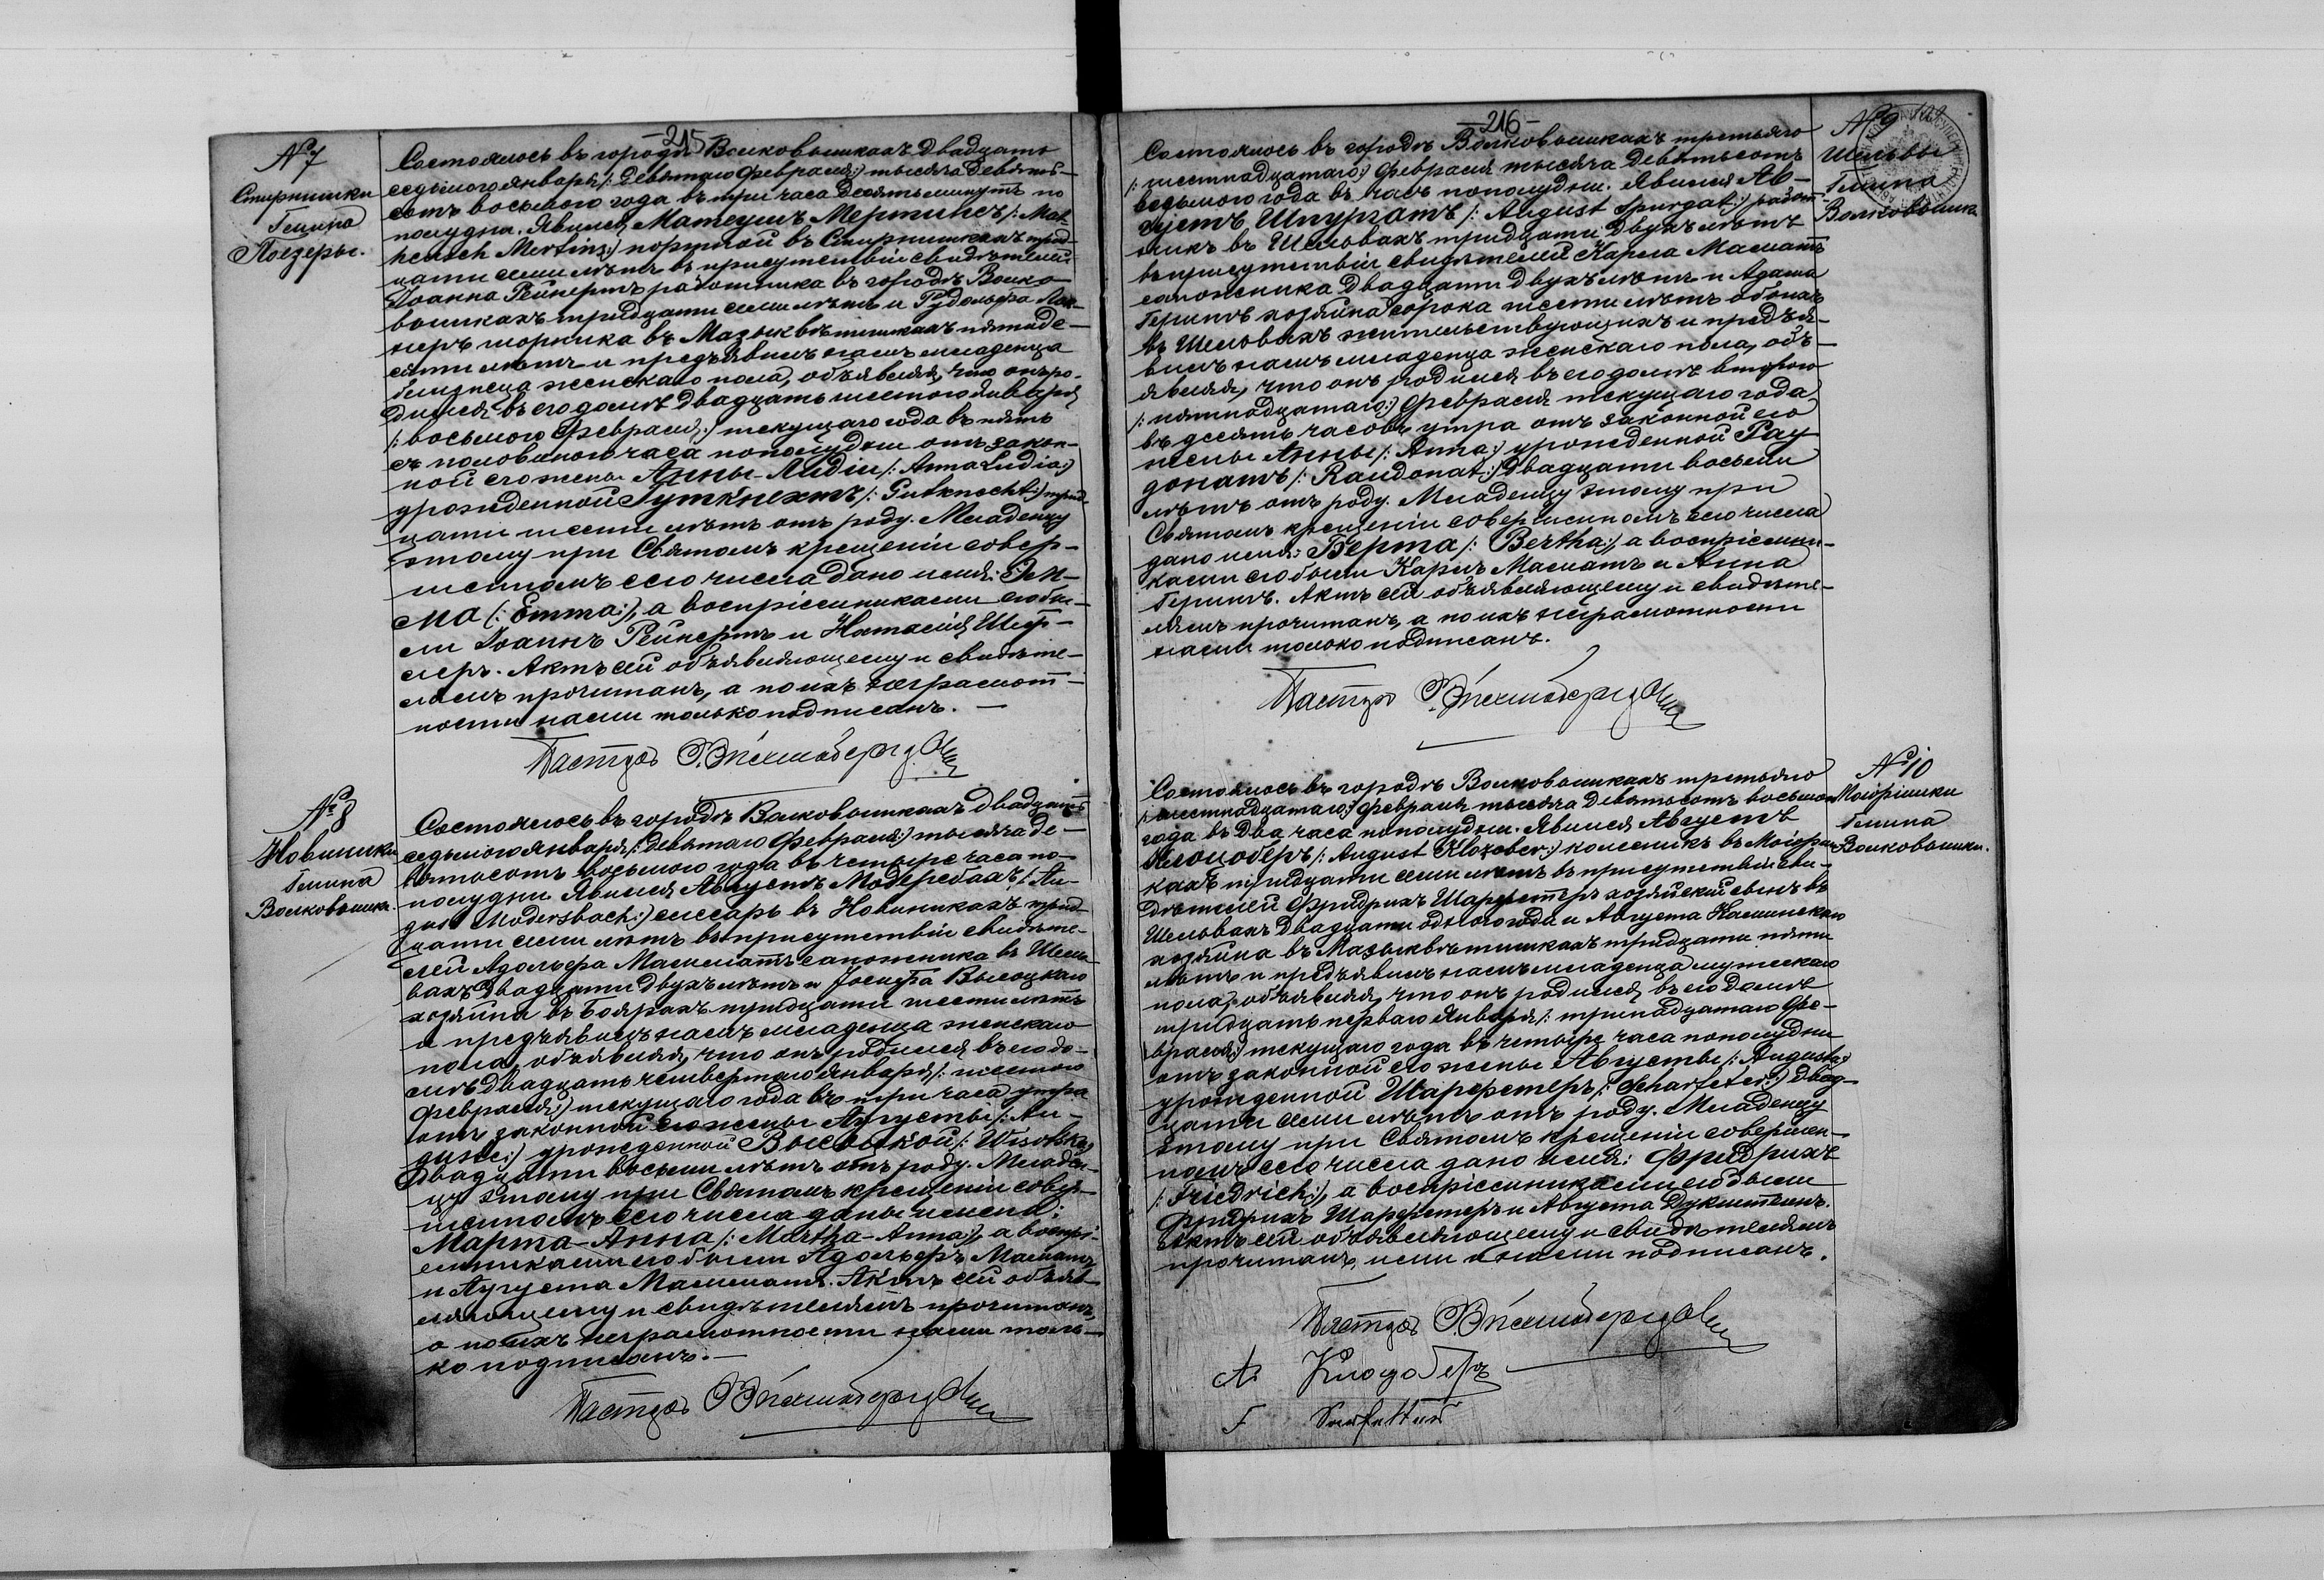 -215-
№ 7
Стирнишки
Гмина
Поезеры.
Состоялось въ городѣ Волковышкахъ двадцать
седьмого Января /: девятаго Февраля :/ тысяча девять-
сотъ восьмого года въ три часа десять минутъ по
полудни. Явился Матеушъ Мертинсъ /: Mat
heusch Mertins :/ портной въ Стирнишкахъ трид-
цати семи лѣтъ въ присутствіи свидѣтелей:
Іоанна Рейнертъ работника въ городѣ Волко
вышкахъ тридцати семи лѣтъ и Рудольфа
неръ шорника въ Мазыквѣтишкахъ пятиде-
сяти лѣтъ и предъявилъ намъ младенца
близнеца женскаго пола, объявляя, что онъ ро-
дился въ его домѣ двадцать шестого Января
/: восьмого Февраля :/ текущаго года въ пять
съ половиною часа пополудни отъ закон-
ной его жены Анны-Лидіи /: Anna Lidia :/
урожденной Гуткнехтъ /: Gutknecht :/ трид-
цати шести лѣтъ отъ роду. Младенцу
этому при Святомъ крещеніи совер-
шенномъ сего числа дано имя: Эм-
ма (: Emma :), а воспріемниками его бы-
ли Іоаннъ Рейнертъ и Наталія Шеф-
леръ. Актъ сей объявляющему и свидѣте-
лямъ прочитанъ, а по ихъ неграмот-
ности нами только подписанъ.
Пасторъ
№ 8
Новиники
Гмина
Волковышки.
Состоялось въ городѣ Волковышкахъ двадцать
седьмого Января /: девятаго Февраля :/ тысяча де-
вятьсотъ восьмого года въ четыре часа по-
полудни. Явился Августъ Модерсбахъ /: Au-
gust Modersbach :/ слесарь въ Новиникахъ трид-
цати семи лѣтъ въ присутствіи свидѣте-
лей Адольфа Масматъ сапожника въ Шель-
вахъ двадцати двухъ лѣтъ и Іосифа Высоцкаго
хозяина въ Боярахъ тридцати шести лѣтъ
и предъявилъ намъ младенца женскаго
пола, объявляя, что онъ родился въ его до-
мѣ двадцать четвертаго Января /: шестого
Февраля :/ текущаго года въ три часа утра
отъ законной его жены Августы /: Au-
guste :/ урожденной Высоцкой /: Wisotska :/
двадцати восьми лѣтъ отъ роду. Младен-
цу этому при Святомъ крещеніи совер-
шенномъ сего числа даны имена:
Марта-Анна /: Martha-Anna :/, а воспрі-
емниками его были Адольфъ Масматъ
и Августа Масматъ. Актъ сей объяв-
ляющему и свидѣтелямъ прочитанъ,
а по ихъ неграмотности нами толь-
ко подписанъ.
Пасторъ
-216-
№ 9
Шельвы
Гмина
Волковышки
Состоялось въ городѣ Волковышкахъ третьяго
/: шестнадцатаго :/ Февраля тысяча девятьсотъ
восьмого года въ часъ пополудни. Явился Ав-
густъ Шпургатъ /: August Spurgat :/ работ-
никъ въ Шельвахъ тридцати двухъ лѣтъ
въ присутствіи свидѣтелей Карла Масматъ
сапожника двадцати двухъ лѣтъ и Адама
Геритъ хозяина сорока шести лѣтъ обоихъ
въ Шельвахъ жительствующихъ и предъя-
вилъ намъ младенца женскаго пола, объ-
являя, что онъ родился въ его домѣ второго
/: пятнадцатаго :/ Февраля текущаго года
въ десять часовъ утра отъ законной его
жены Анны /: Anna :/ урожденной Рау-
донатъ /: Raudonat :/ двадцати восьми
лѣтъ отъ роду. Младенцу этому при
Святомъ крещеніи совершенномъ сего числа
дано имя: Берта /: Bertha :/, а воспріемни-
ками его были Карлъ Масматъ и Анна
Геритъ. Актъ сей объявляющему и свидѣте-
лямъ прочитанъ, а по ихъ неграмотности
нами только подписанъ.
Пасторъ
№ 10
Мопришки
Гмина
Волковышки.
Состоялось въ городѣ Волковышкахъ третьяго
/: шестнадцатаго :/ Февраля тысяча девятьсотъ восьмого
года въ два часа пополудни. Явился Августъ
Клоцоберъ /: August Klozober :/ колесникъ въ Моприш-
кахъ тридцати семи лѣтъ въ присутствіи сви-
дѣтелей Фридрихъ Шарфетеръ хозяйскій сынъ въ
Шельвахъ двадцати одного года и Августа Каминскаго
хозяина въ Мазыквѣтишкахъ тридцати пяти
лѣтъ и предъявилъ намъ младенца мужескаго
пола, объявляя, что онъ родился въ его домѣ
тридцать перваго Января /: тринадцатаго Фе-
враля :/ текущаго года въ четыре часа пополудни
отъ законной его жены Августы /: Augusta :/
урожденной Шарфетеръ /: Scharfeter :/ двад-
цати семи лѣтъ отъ роду. Младенцу
этому при Святомъ крещеніи совершен-
номъ сего числа дано имя: Фридрихъ
/: Friedrich :/, а воспріемниками его были
Фридрихъ Шарфетеръ и Августа
Актъ сей объявляющему и свидѣтелямъ
прочитанъ, ими и нами подписанъ.
Пасторъ
А. Клоцоберъ
F